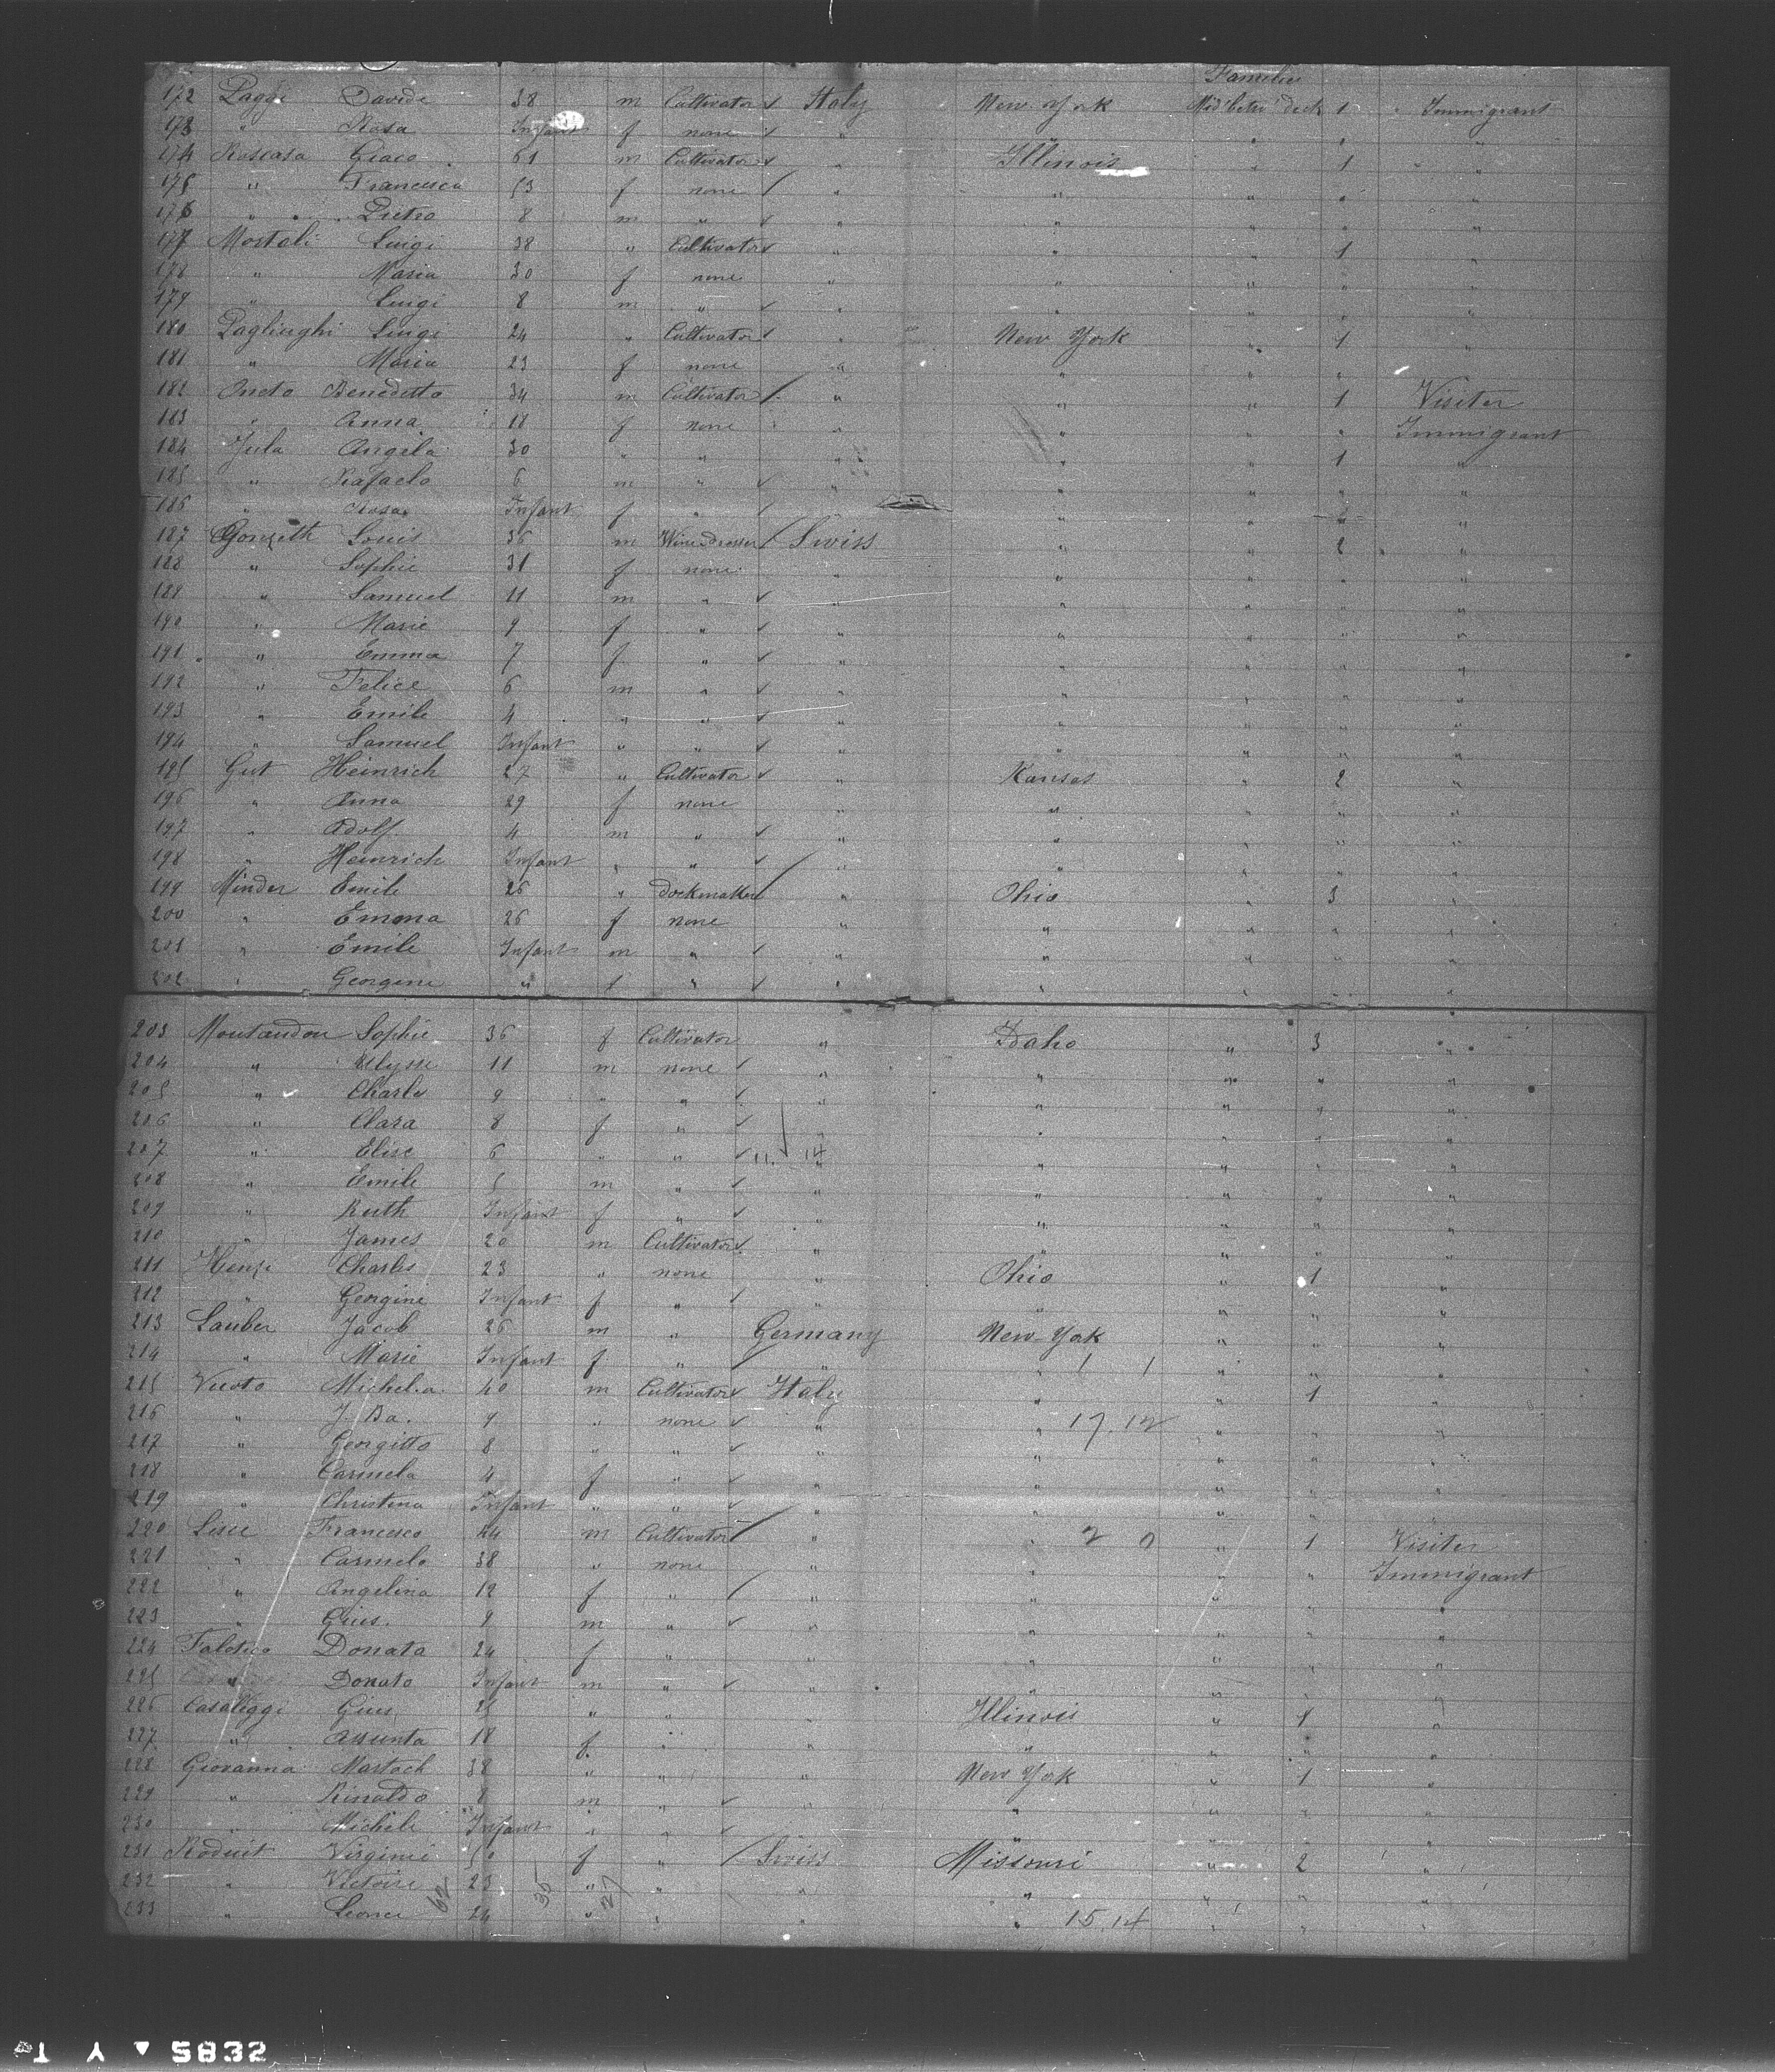 Familie
172 Paggi Davide 38 m Cultivator Italy New York Mid'betw'deck 1 Immigrant
173 " Rosa Infant f none " " " " "
174 Roscasa Giaco 61 m Cultivator " Illinois " 1 "
175 " Francesca 53 f none " " " " "
176 " Pietro 8 m " " " " " "
177 Mortali Luigi 38 " Cultivator " " " 1 "
178 " Maria 30 f none " " " " "
179 " Luigi 8 m " " " " " "
180 Pagliughi Luigi 24 " Cultivator " New York " 1 "
181 " Maria 23 f none " " " " "
182 Oneto Benedetto 34 m Cultivator " " " 1 Visiter
183 " Anna 18 f none " " " " Immigrant
184 Jula Angela 30 " " " " " 1 "
185 " Rafaelo 6 m " " " " " "
186 " Rosa Infant f " " " " "
187 Gonzeth Louis 36 m Winedresser Swiss " " 2 "
188 " Sophie 31 f none " " " " "
189 " Samuel 11 m " " " " " "
190 " Marie 9 f " " " " " "
191 " Emma 7 f " " " " " "
192 " Felice 6 m " " " " " "
193 " Emile 4 " " " " " " "
194 " Samuel Infant " " " " " " "
195 Gut Heinrich 27 " Cultivator " Kansas " 2 "
196 " Anna 29 f none " " " " "
197 " Adolf 4 m " " " " " "
198 " Heinrich Infant " " " " " " "
199 Minder Emile 26 " " Ohio " 3 "
200 " Emma 26 f none " " " " "
201 " Emile Infant m " " " " " "
202 " Georgine " f " " " " " "
203 Montandon Sophie 36 f Cultivator " Idaho " 3 "
204 " Ulysse 11 m none " " " " "
205 " Charles 9 " " " " " " "
206 " Clara 8 f " " " " " "
207 " Elise 6 " " 11 14 " " " " "
208 " Emile 5 m " " " " " "
209 " Ruth Infant f " " " " " "
210 " James 20 m Cultivator " " " " "
211 Henzi Charles 23 " none " Ohio " 1 "
212 " Georgine Infant f " " " " " "
213 Lauber Jacob 26 m " Germany New York " " "
214 " Marie Infant f " " " 1 1 " " "
215 Vuoto Michel.a. 40 m Cultivator Italy " " 1 "
216 " J. Ba. 9 " none " " 17.12 " " "
217 " Georgitto 8 " " " " " " "
218 " Carmela 4 f " " " " " "
219 " Christina Infant " " " " " " "
220 Francesco 44 m Cultivator " " 2 0 " 1 Visiter
221 " Carmelo 38 " none " " " " Immigrant
222 " Angelina 12 f " " " " " "
223 " Gius. 9 m " " " " " "
224 Falotico Donata 24 f " " " " " "
225 " Donato Infant m " " " " " "
226 Casaleggi Gius. 25 " " " Illinois " 1 "
227 " Assunta 18 f " " " " " "
228 Giovanna Mastach 38 " " " New York " 1 "
229 " Rinaldo 8 m " " " " " "
230 " Michele Infant " " " " " " "
231 Roduit Virginie 50 f " Swiss Missouri " 2 "
232 " Victoire 23 " " " " " " "
233 " Leonie 24 " " " " 15.14 " " "
62 35 27
5832